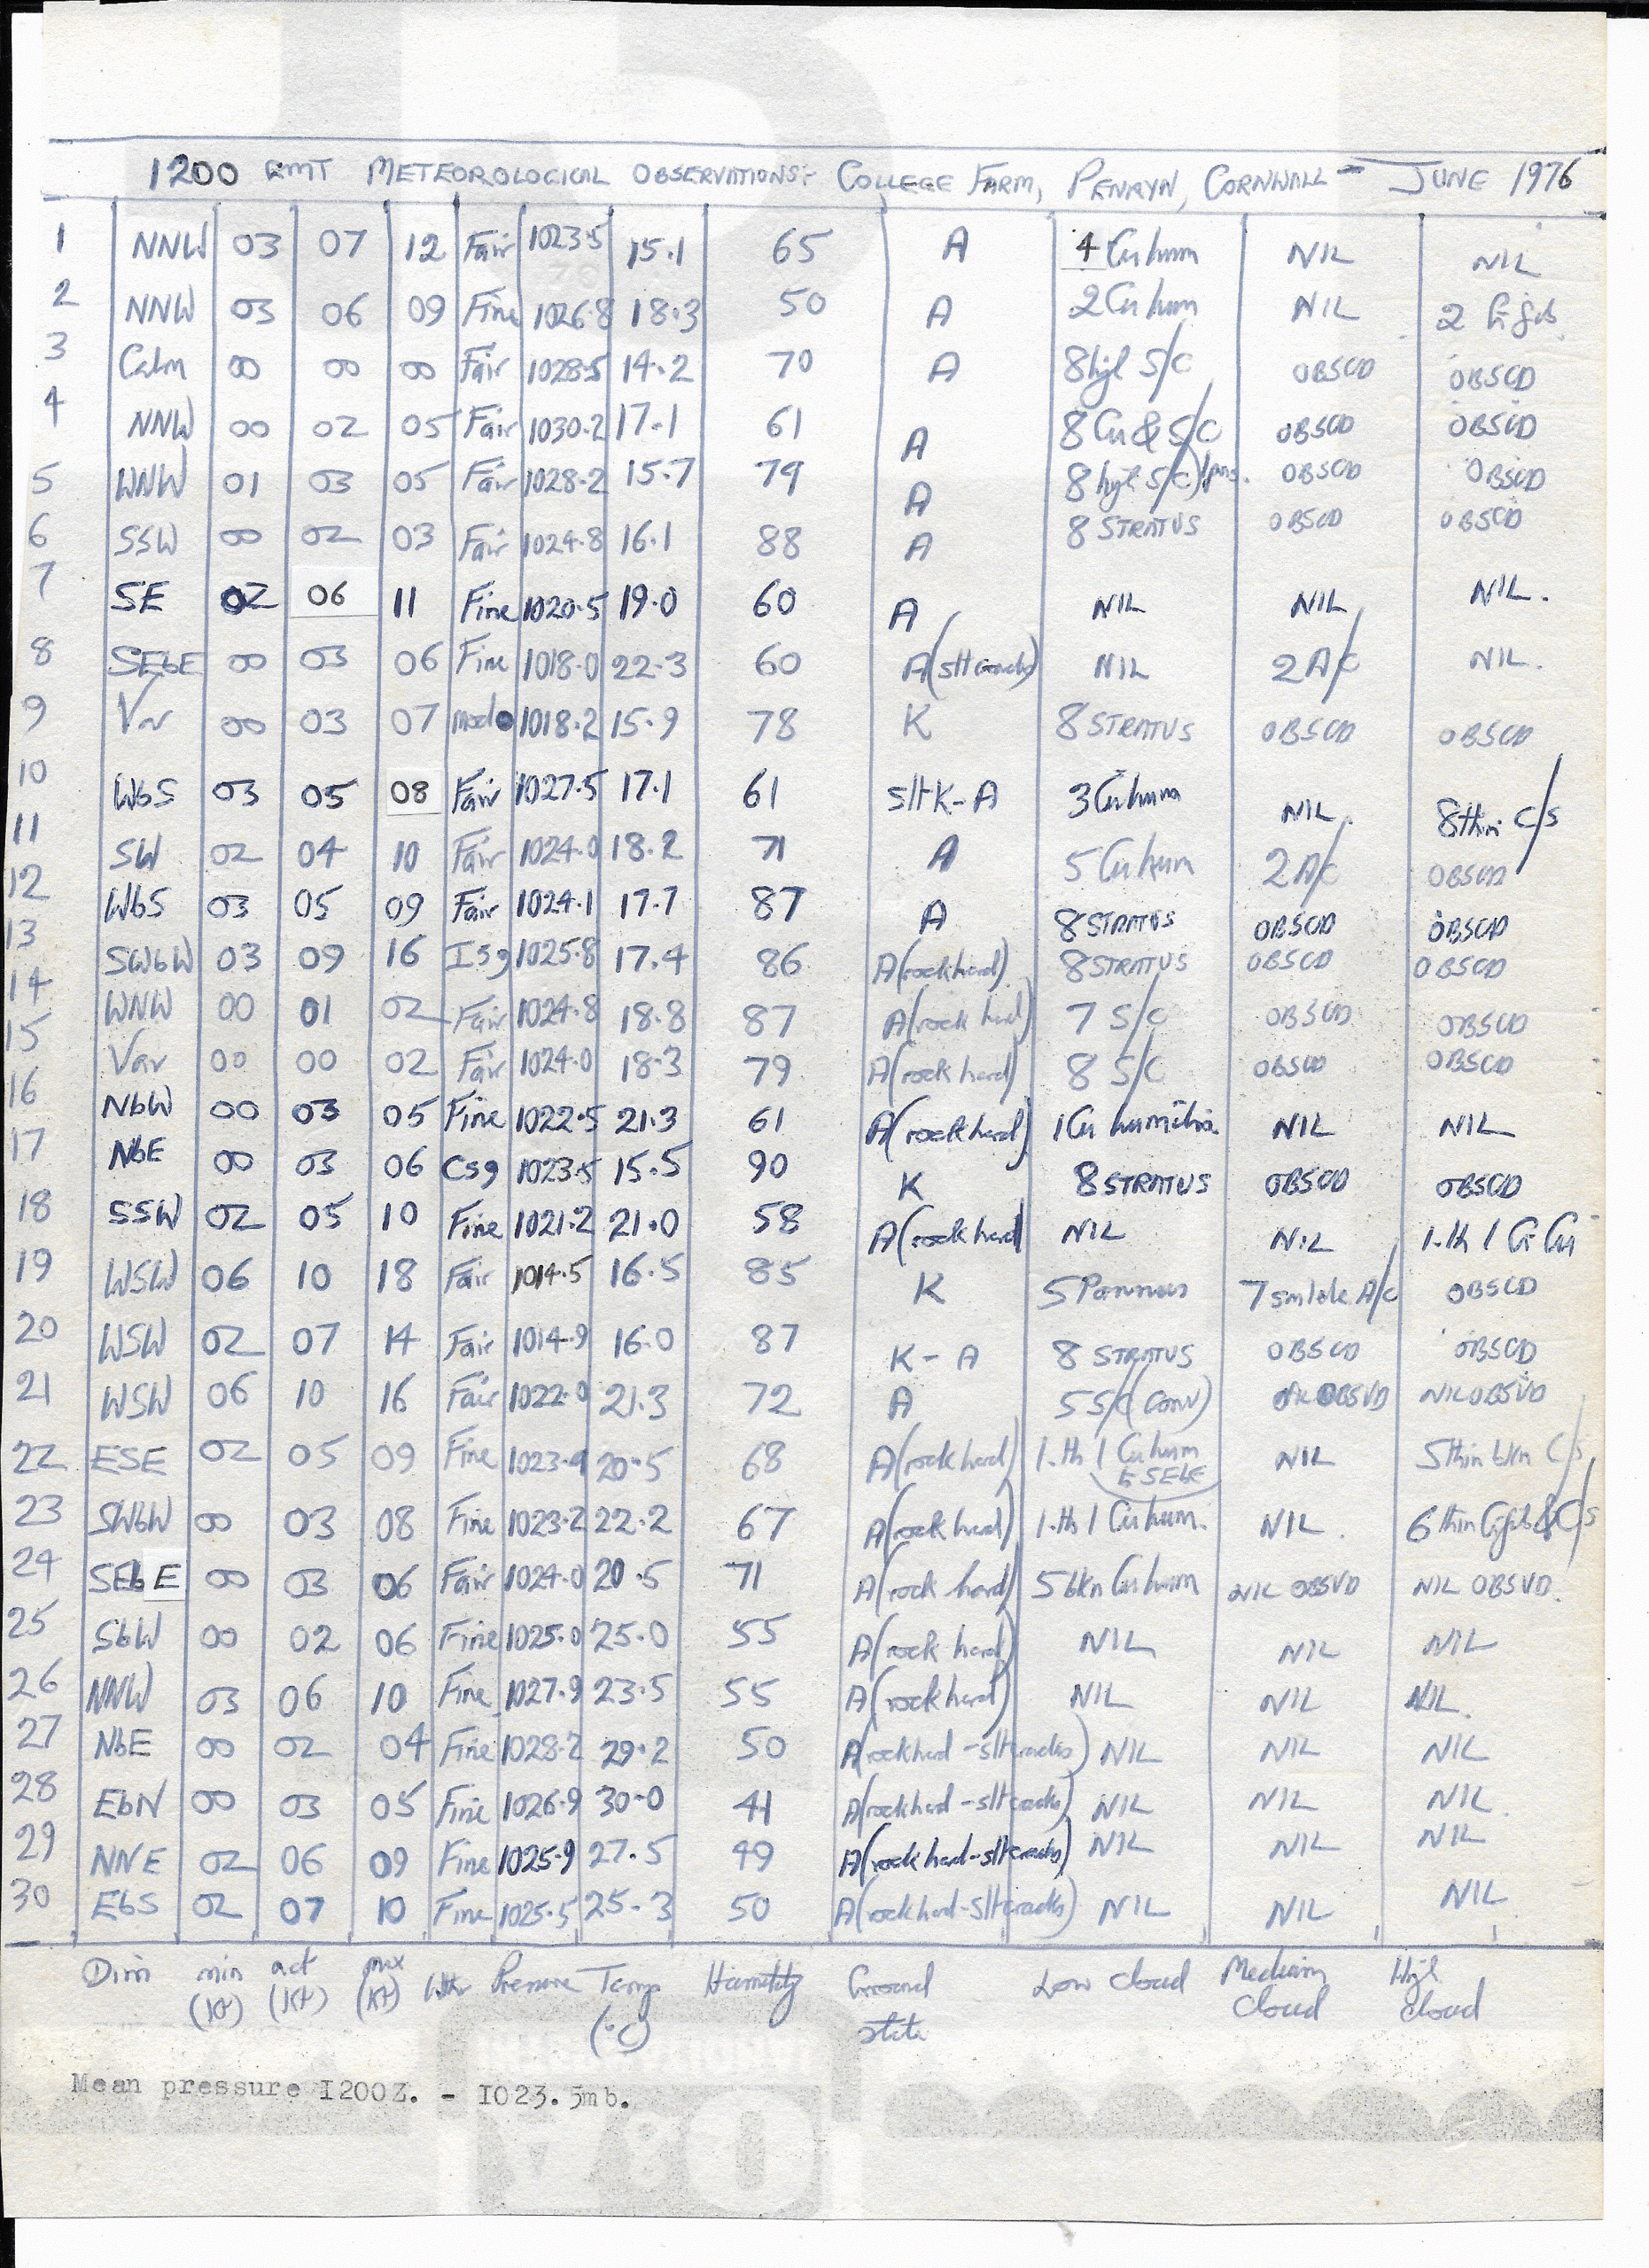 1200 GMT METEOROLOGICAL OBSERVATIONS:- COLLEGE FARM, PENRYN, CORNWALL - JUNE 1976
1 NNW 03 07 12 Fair 1023.5 15.1 65 A 4 Cu hum NIL NIL
2 NNW 03 06 09 Fine 1026.8 18.3 50 A 2 Cu hum NIL 2 Ci
3 Calm 00 00 00 Fair 1028.5 14.2 70 A 8 S/C OBSCD OBSCD
4 NNW 00 02 05 Fair 1030.2 17.1 61 A 8 Cu & S/C OBSCD OBSCD
5 WNW 01 03 05 Fair 1028.2 15.7 79 A 8 S/C OBSCD OBSCD
6 SSW 00 02 03 Fair 1024.8 16.1 88 A 8 STRATUS OBSCD OBSCD
7 SE 02 06 11 Fine 1020.5 19.0 60 A NIL NIL NIL.
8 SEbE 00 03 06 Fine 1018.0 22.3 60 A(slt cracks) NIL 2 A/C NIL.
9 Var 00 03 07 mod 1018.2 15.9 78 K 8 STRATUS OBSCD OBSCD
10 WbS 03 05 08 Fair 1027.5 17.1 61 slt K-A 3 Cu hum NIL. 8 thin C/S
11 SW 02 04 10 Fair 1024.0 18.2 71 A 5 Cu hum 2 A/C OBSCD
12 WbS 03 05 09 Fair 1024.1 17.7 87 A 8 STRATUS OBSCD OBSCD
13 SWbW 03 09 16 Isg 1025.8 17.4 86 A(rock hard) 8 STRATUS OBSCD OBSCD
14 WNW 00 01 02 Fair 1024.8 18.8 87 A(rock hard) 7 S/C OBSCD OBSCD
15 Var 00 00 02 Fair 1024.0 18.3 79 A(rock hard) 8 S/C OBSCD OBSCD
16 NbW 00 03 05 Fine 1022.5 21.3 61 A(rock hard) 1 Cu humilis. NIL NIL
17 NbE 00 03 06 Csg 1023.5 15.5 90 K 8 STRATUS OBSCD OBSCD
18 SSW 02 05 10 Fine 1021.2 21.0 58 A(rock hard NIL NIL 1.th 1 Ci
19 WSW 06 10 18 Fair 1014.5 16.5 85 K 5 Pannus 7 A/C OBSCD
20 WSW 02 07 14 Fair 1014.9 16.0 87 K-A 8 STRATUS OBSCD OBSCD
21 WSW 06 10 16 Fair 1022.0 21.3 72 A 5 S/C (CONV) OBSVD NIL OBSVD
22 ESE 02 05 09 Fine 1023.9 20.5 68 A(rock hard) 1.th 1 Cu hum NIL 5 thin bkn C/S
E SEbE
23 SWbW 00 03 08 Fine 1023.2 22.2 67 A(rock hard) 1.th 1 Cu hum. NIL. 6 thin & C/S
24 SEbE 00 03 06 Fair 1024.0 20.5 71 A(rock hard) 5 bkn Cu hum NIL OBSVD NIL OBSVD.
25 SbW 00 02 06 Fine 1025.0 25.0 55 A(rock hard) NIL NIL NIL
26 NNW 03 06 10 Fine 1027.9 23.5 55 A(rock hard) NIL NIL NIL.
27 NbE 00 02 04 Fine 1028.2 29.2 50 A(rock hard - slt cracks) NIL NIL NIL
28 EbN 00 03 05 Fine 1026.9 30.0 41 A(rock hard - slt cracks) NIL NIL NIL.
29 NNE 02 06 09 Fine 1025.9 27.5 49 A(rock hard - slt cracks) NIL NIL NIL
30 EbS 02 07 10 Fine 1025.5 25.3 50 A(rock hard - slt cracks) NIL NIL NIL
Dirn min (Kt) act (Kt) max (Kt) Wthr Pressure Temp (°C) Humidity Ground state Low cloud Medium cloud High cloud
Mean pressure I200Z. - I023.5mb.